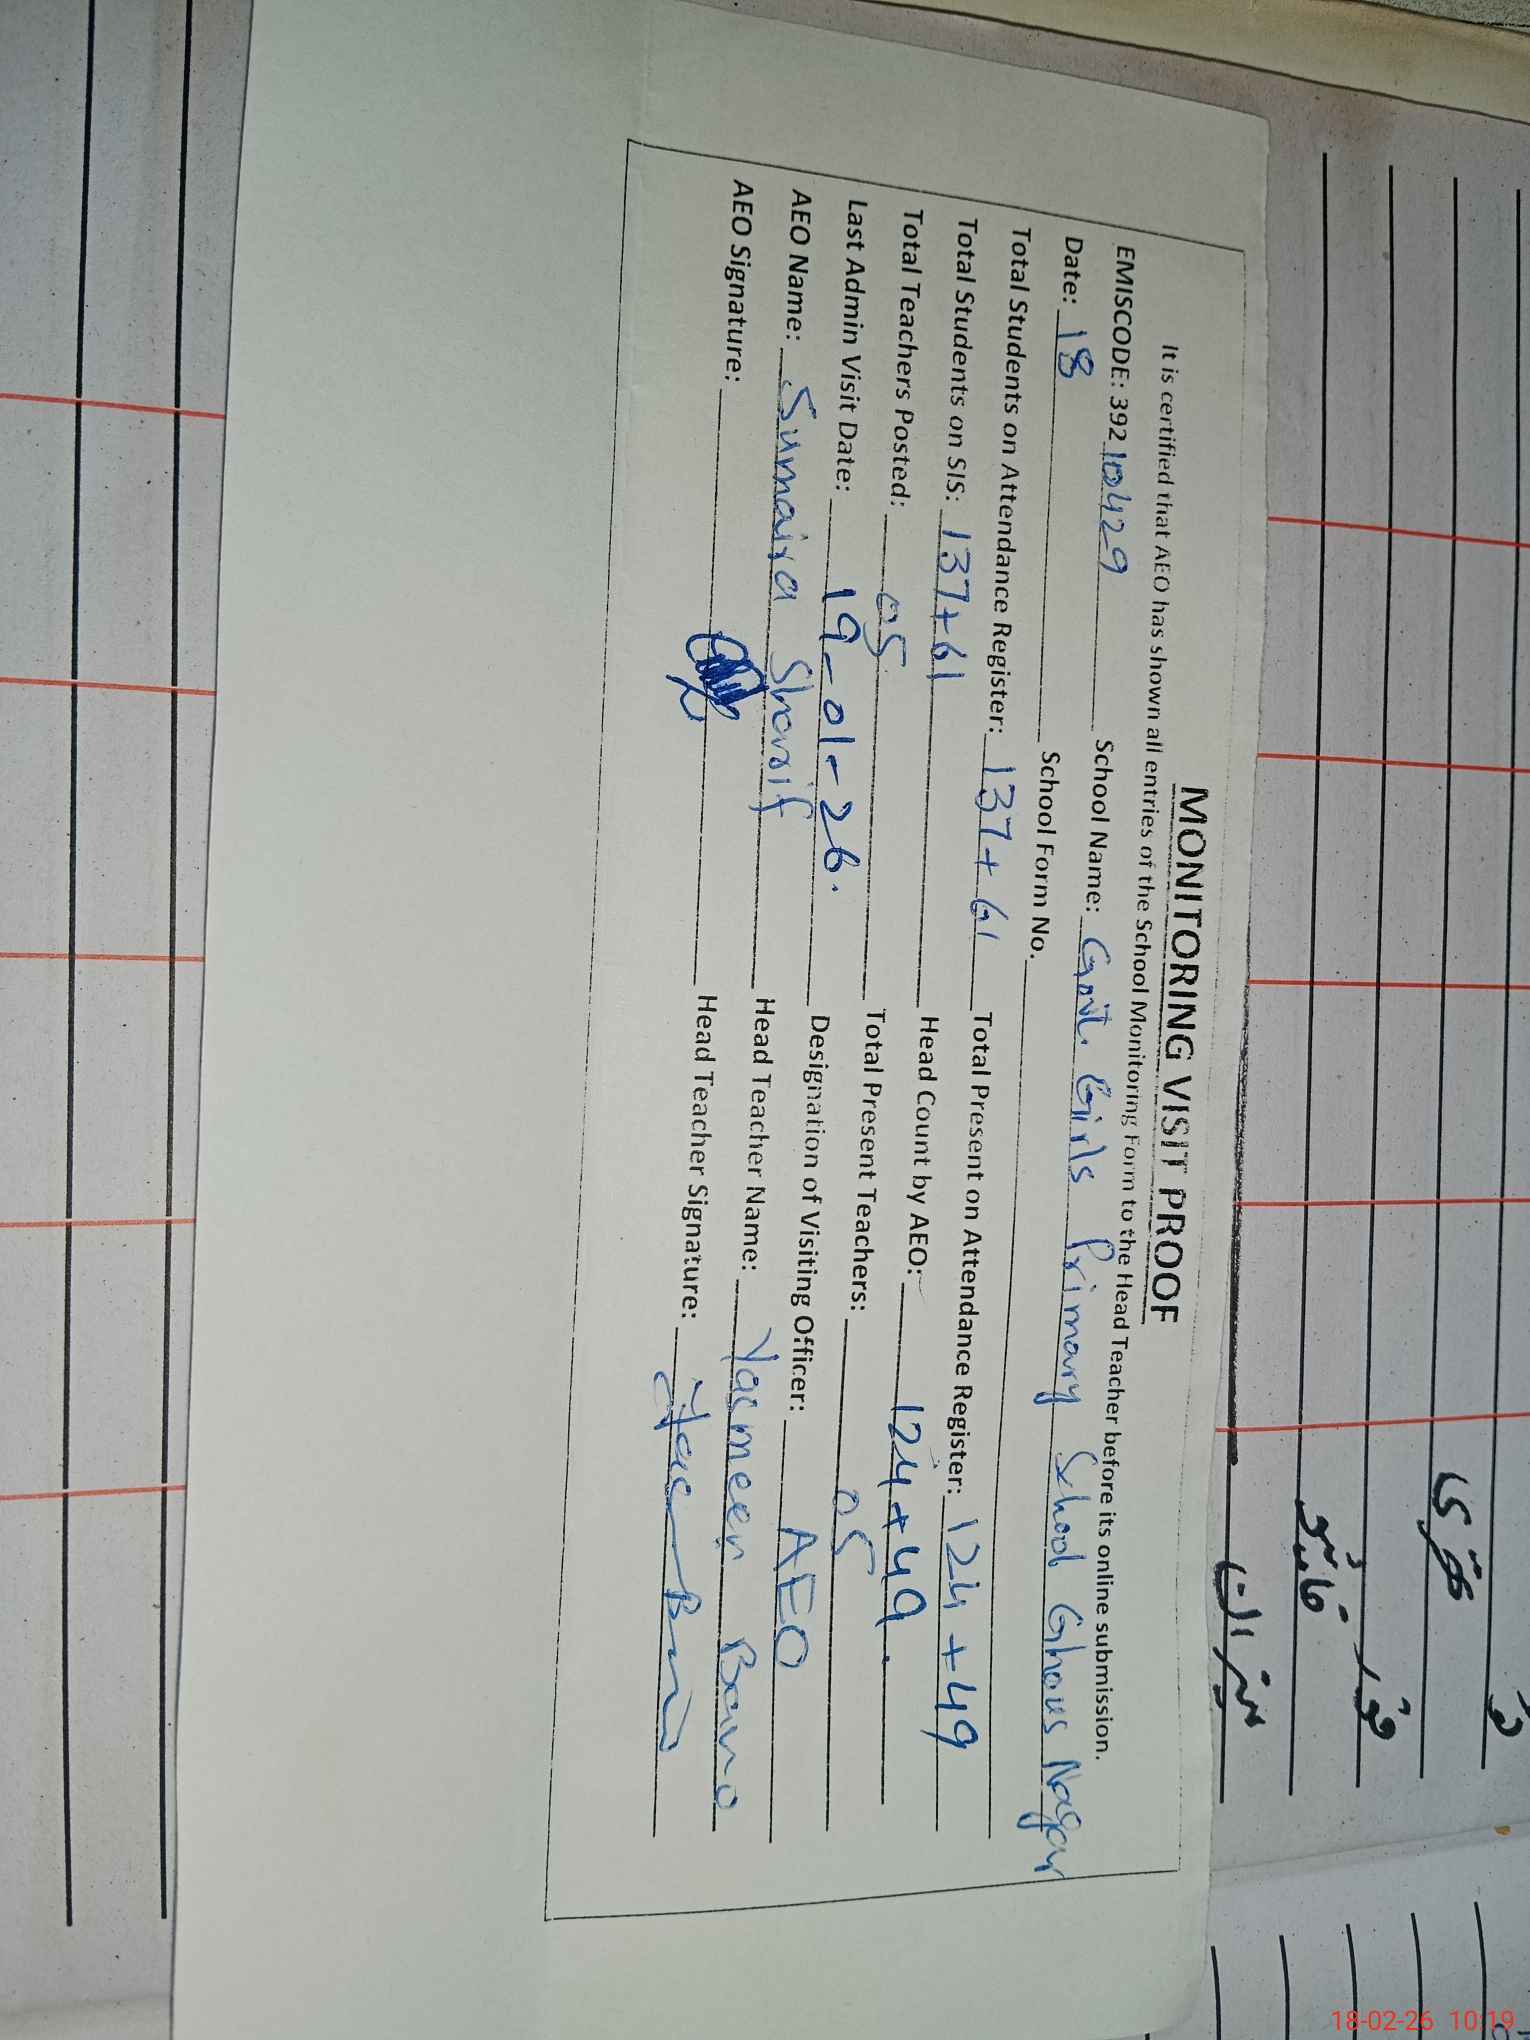 MONITORING VISIT PROOF
It is certified that AEO has shown all entries of the School Monitoring Form to the Head Teacher before its online submission.
EMISCODE: 39210429 School Name: Govt. Girls Primary School Ghous Nagar
Date: 18 School Form No.
Total Students on Attendance Register: 137+61 Total Present on Attendance Register: 124+49
Total Students on SIS: 137+61 Head Count by AEO: 124+49.
Total Teachers Posted: 05 Total Present Teachers: 05
Last Admin Visit Date: 19-01-26. Designation of Visiting Officer: AEO
AEO Name: Sumaira Sharif Head Teacher Name: Yasmeen Bano
AEO Signature: Head Teacher Signature:
میزان
18-02-26 10:19